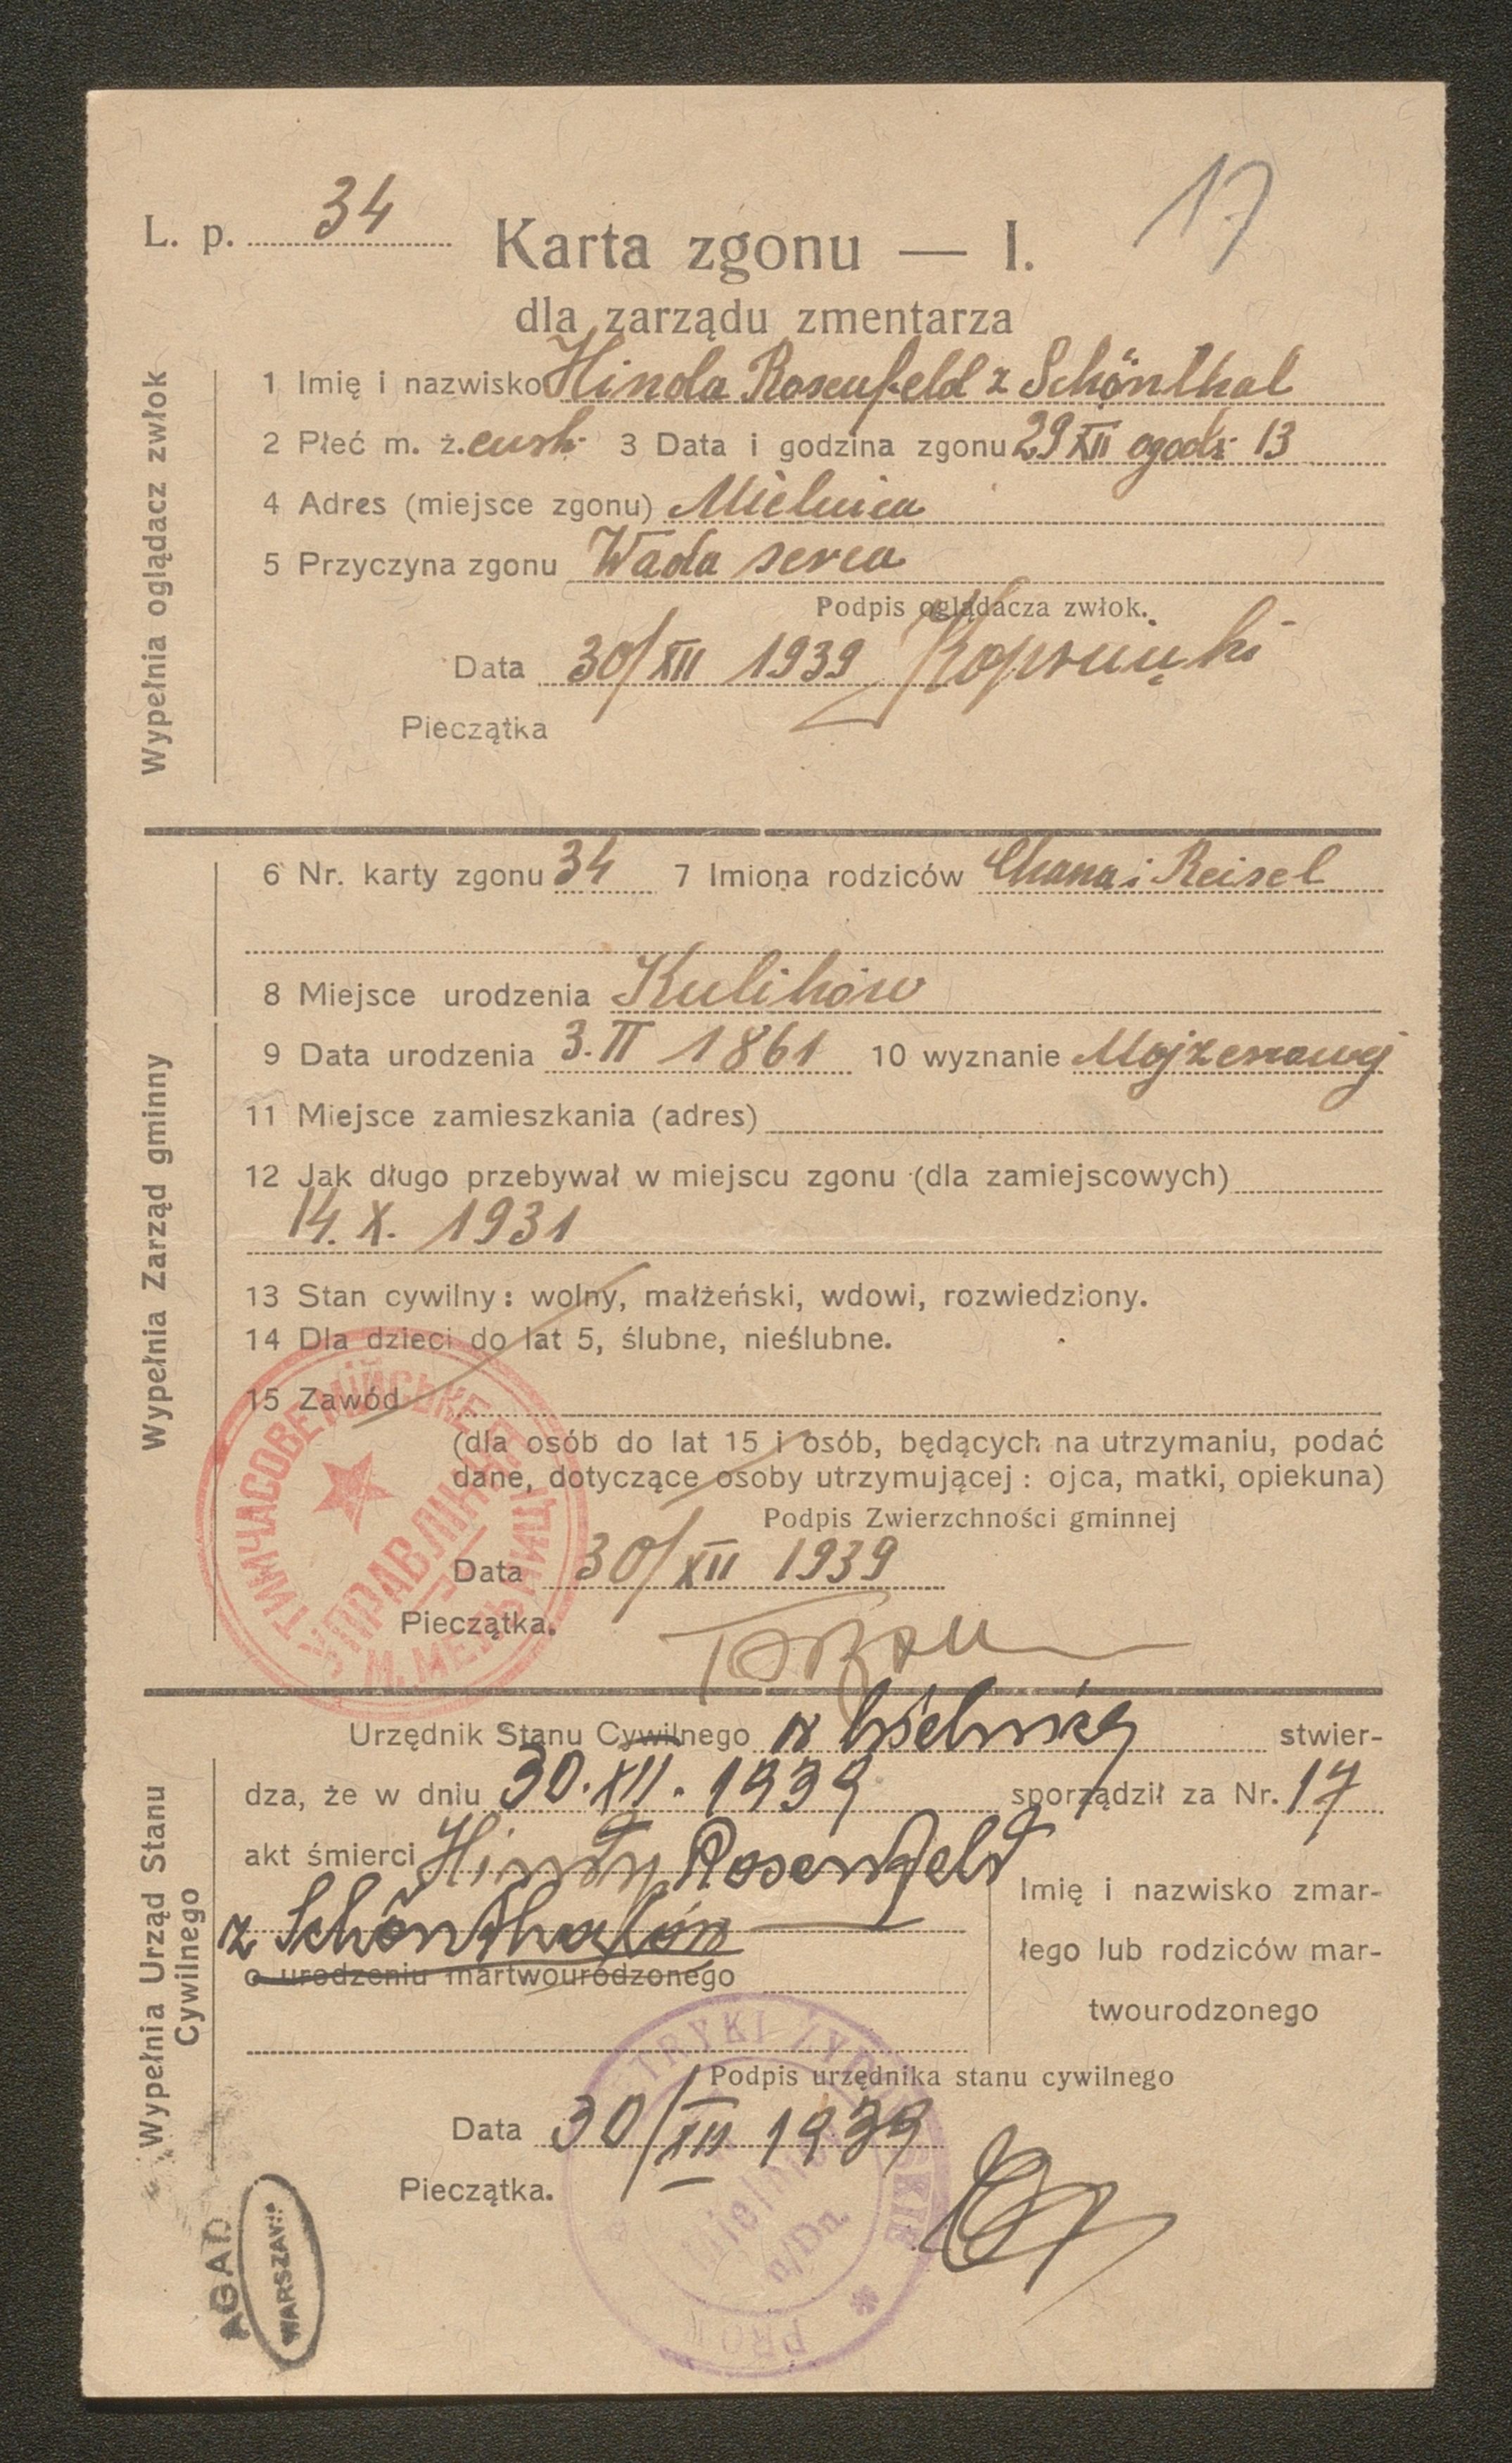 L. p. 34
17
Karta zgonu — I.
dla zarządu zmentarza
Wypełnia oglądacz zwłok
1 Imię i nazwisko Hinda Rosenfeld z Schönthal
2 Płeć m. ż. 3 Data i godzina zgonu 29 XII o godz. 13
4 Adres (miejsce zgonu) Mielnica
5 Przyczyna zgonu Wada serca
Podpis oglądacza zwłok.
Data 30/XII 1939
Pieczątka
Wypełnia Zarząd gminny
6 Nr. karty zgonu 34 7 Imiona rodziców Chana i Reisel
8 Miejsce urodzenia Kulików
9 Data urodzenia 3. II 1861 10 wyznanie
11 Miejsce zamieszkania (adres)
12 Jak długo przebywał w miejscu zgonu (dla zamiejscowych)
14. X. 1931
13 Stan cywilny: wolny, małżeński, wdowi, rozwiedziony.
14 Dla dzieci do lat 5, ślubne, nieślubne.
15 Zawód
(dla osób do lat 15 i osób, będących na utrzymaniu, podać
dane, dotyczące osoby utrzymującej: ojca, matki, opiekuna)
Podpis Zwierzchności gminnej
Data 30/XII 1939
Pieczątka.
ТИМЧАСОВЕ МІЙСЬКЕ
УПРАВЛІННЯ
М. МЕЛЬНИЦІ
Wypełnia Urząd Stanu
Cywilnego
Urzędnik Stanu Cywilnego w Mielnicy stwier-
dza, że w dniu 30. XII. 1939 sporządził za Nr. 17
akt śmierci Hindy Rosenfeld
z Schönthalów
o urodzeniu martwourodzonego
Imię i nazwisko zmar-
łego lub rodziców mar-
twourodzonego
Podpis urzędnika stanu cywilnego
Data 30/XII 1939
Pieczątka.
METRYKI ŻYDOWSKIE
n/Dn.
PROW
AGAD
WARSZAWA